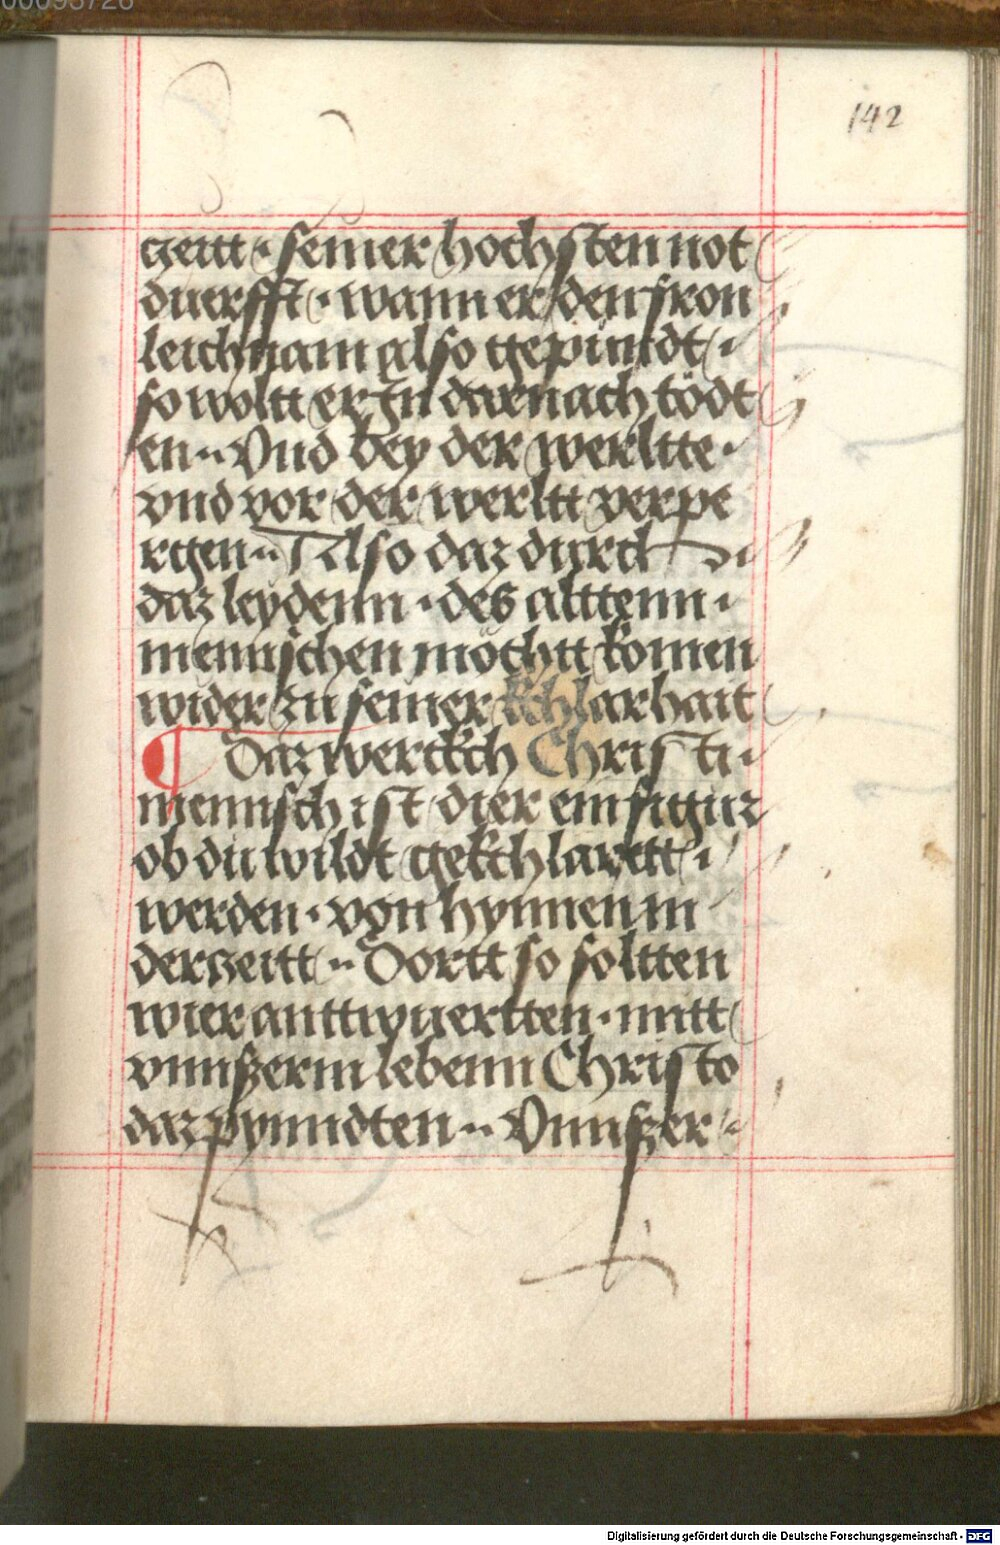 00095726
142
zeitt · seiner hochsten not
duerfft · wann er den fron
leichnam also gepinndt ·
so woltt er in darnach tödt
en ·· Vnd bey der werltte ·
vnd vor der werltt verpe
rgen ·· Also daz durch
daz leydenn · des alttenn ·
mennschen möchtt komen
wider zu seiner kchlarhait
¶ Daz werckch Christi ·
mennsch ist dier ein figur
ob du wildt gekchlartt ·
werden · von hynnen in
der zeitt ·· Dortt so soltten
wier anttwuertten · mitt
vnnszerm lebenn Christo
daz pynndten ·· Vnnszer ·
Digitalisierung gefördert durch die Deutsche Forschungsgemeinschaft - DFG